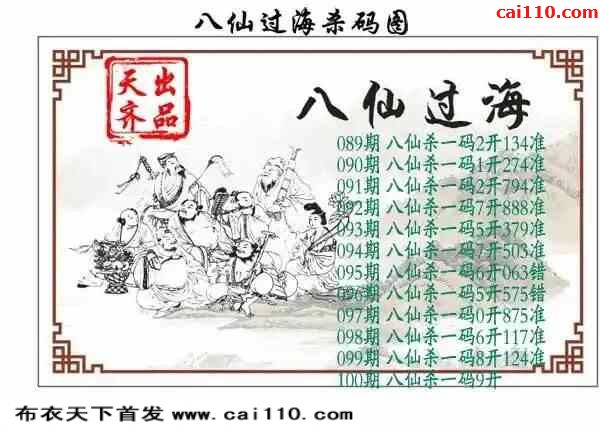 八仙过海杀码图
cai110.com
天齐
出品
八仙过海
089期 八仙杀一码2开134准
090期 八仙杀一码1开274准
091期 八仙杀一码2开794准
092期 八仙杀一码7开888准
093期 八仙杀一码5开379准
094期 八仙杀一码7开503准
095期 八仙杀一码6开063错
096期 八仙杀一码5开575错
097期 八仙杀一码0开875准
098期 八仙杀一码6开117准
099期 八仙杀一码8开124准
100期 八仙杀一码9开
布衣天下首发 www.cai110.com